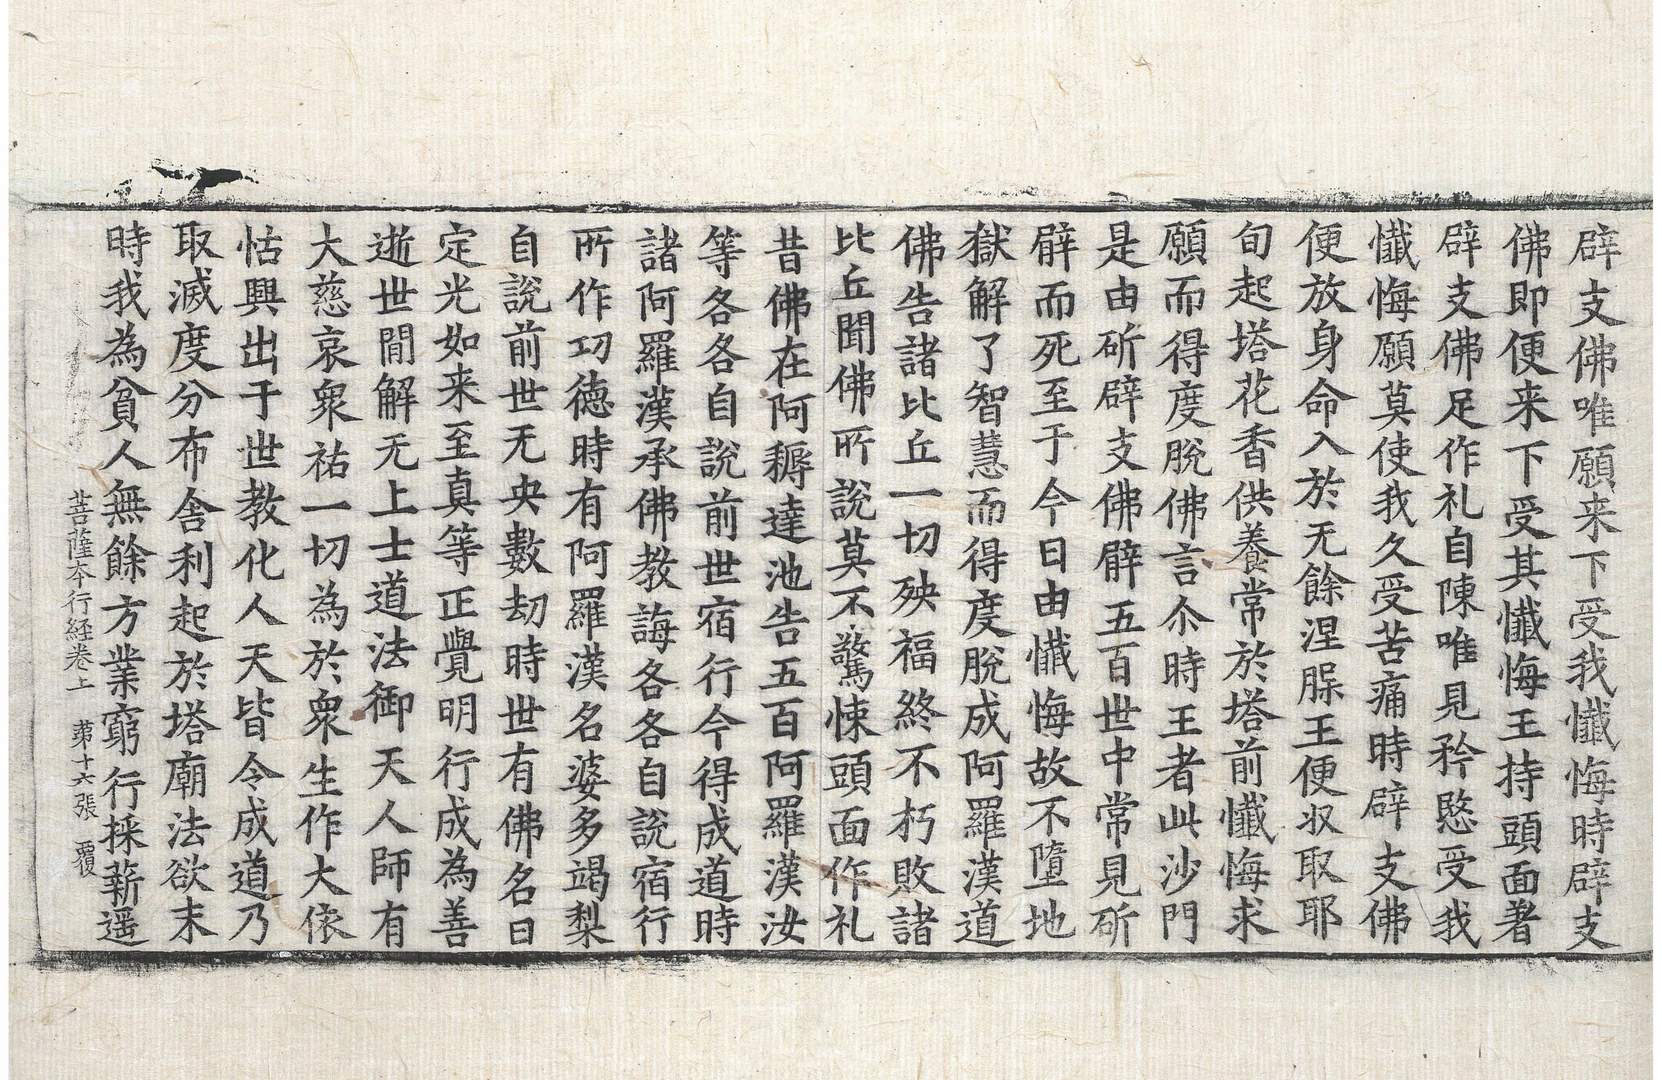 辟支佛唯願来下受我懺悔時辟支
佛即便来下受其懺悔王持頭面著
辟支佛足作礼自陳唯見矜愍受我
懺悔願莫使我久受苦痛時辟支佛
便放身命入於无餘涅槃王便収取耶
旬起塔花香供養常於塔前懺悔求
願而得度脫佛言尒時王者此沙門
是由斫辟支佛臂五百世中常見斫
臂而死至于今日由懺悔故不墮地
獄解了智慧而得度脫成阿羅漢道
佛告諸比丘一切殃福終不朽敗諸
比丘聞佛所說莫不驚悚頭面作礼
昔佛在阿耨達池告五百阿羅漢汝
等各各自說前世宿行今得成道時
諸阿羅漢承佛教誨各各自說宿行
所作功德時有阿羅漢名婆多竭梨
自說前世无央數劫時世有佛名曰
定光如来至真等正覺明行成為善
逝世間解无上士道法御天人師有
大慈哀衆祐一切為於衆生作大依
怙興出于世教化人天皆令成道乃
取滅度分布舎利起於塔廟法欲末
時我為貧人無餘方業窮行採薪遥
菩薩本行経巻上　苐十六張　覆